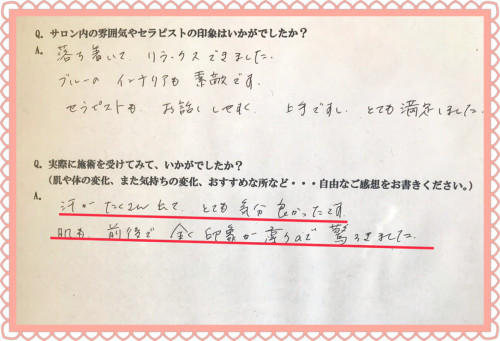 Q. サロン内の雰囲気やセラピストの印象はいかがでしたか？
A. 落ち着いて、リラックスできました。
ブルーの インテリアも 素敵です。
セラピストも、お話ししやすく、上手ですし、とても満足しました。
Q. 実際に施術を受けてみて、いかがでしたか？
（肌や体の変化、また気持ちの変化、おすすめな所など・・・自由なご感想をお書きください。）
A. 汗が たくさん出て、とても 気分 良かったです。
肌も 前後で 全く 印象が 違うので 驚きました。